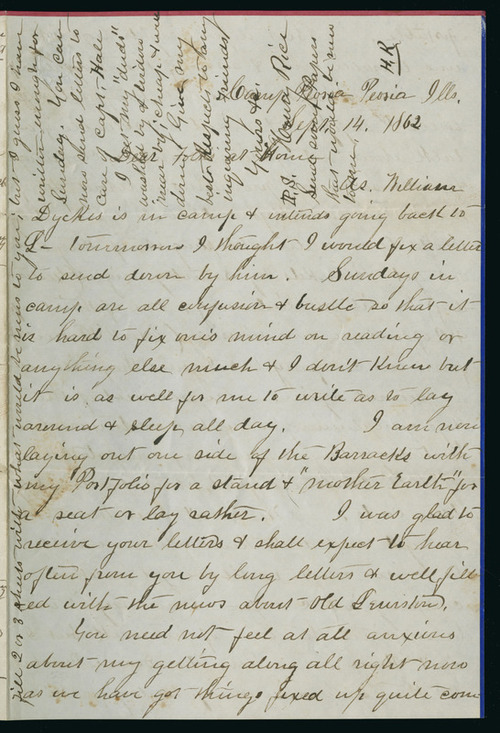 Camp Peoria Peoria Ills.
Sept 14. 1862
Dear Folks at Home
As. William
Dyckes is in camp & intends going back to
L— tommorrow I thought I would fix a letter
to send down by him. Sundays in
camp are all confusion & bustle so that it
is hard to fix one's mind on reading or
anything else much & I don't know but
it is as well for me to write as to lay
around & sleep all day. I am now
laying out one side of the Barracks with
my Portfolio for a stand & "mother Earth" for
a seat or lay rather. I was glad to
receive your letters & shall expect to hear
often from you by long letters & well fill-
ed with the news about Old Lewiston.
You need not feel at all anxious
about my getting along all right now
as we have got things fixed up quite com-
fill 2 or 3 sheets with what would be news to you; but I guess I have
written enough for
Sunday. You can
now send letters to
care of Capt. Hale
I got my "duds"
washed by &
Give my
best respects to any
inquiring friends
Yours &c.
Rice
P.S. Send some papers
that would be new
H.R